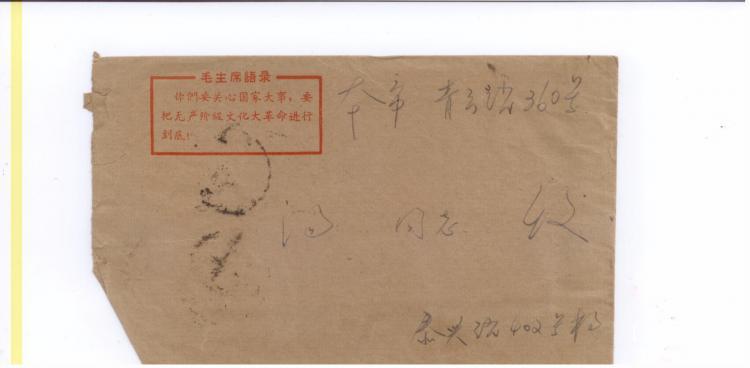 毛主席語录
你們要关心国家大事，要
把无产阶级文化大革命进行
到底！
本市 青云路360号
冯 同志 收
泰兴路402号